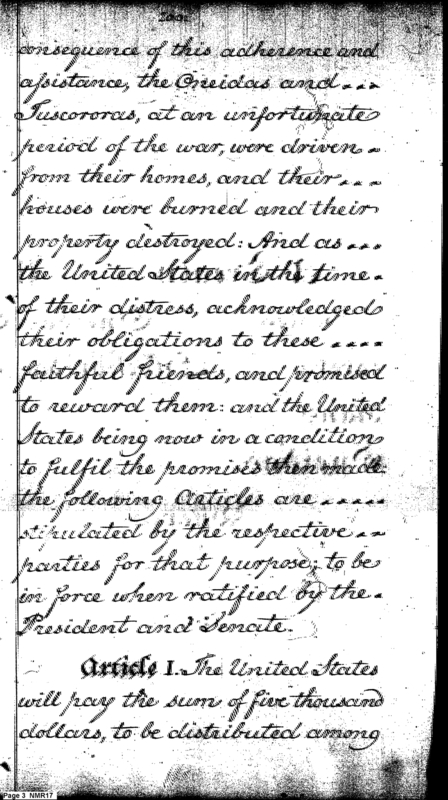 consequence of this adherence and
assistance, the Oneidas and . . .
Tuscororas, at an unfortunate
period of the war, were driven -
from their homes, and their . . .
houses were burned and their
property destroyed: And as . . .
the United States in the time -
of their distress, acknowledged
their obligations to these . . . .
faithful friends, and promised
to reward them: and the United
States being now in a condition
to fulfil the promises then made:
the following Articles are . . . . .
stipulated by the respective . .
parties for that purpose; to be
in force when ratified by the -
President and Senate.
Article I. The United States
will pay the sum of five thousand
dollars, to be distributed among
Page 3 NMR17